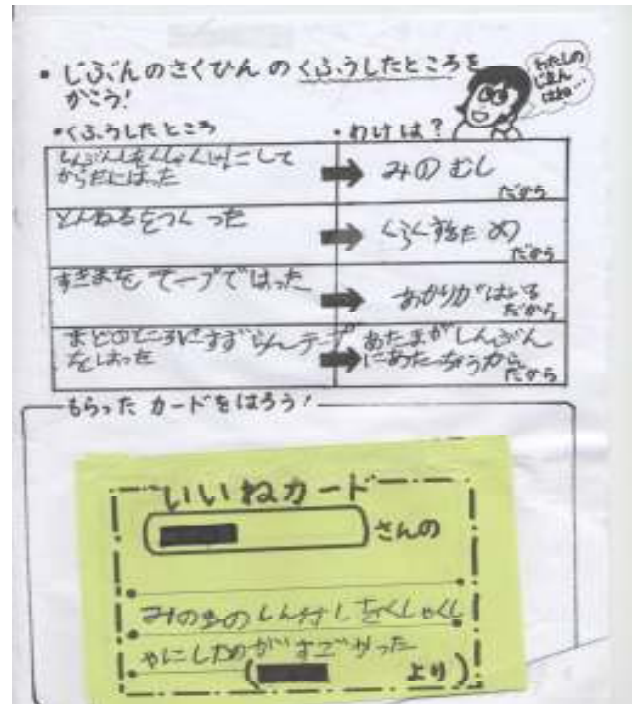 ・じぶんのさくひんのくふうしたところを
かこう!
わたしの
じまん
はね…
・くふうしたところ ・わけは?
くしゃくしゃにして
からだにはった
➡ みのむし
だから
とんねるをつくった
➡ くらくするため
だから
すきまをテープではった
➡ あかりがはいる
だから
まどのところにすずらんテープ
をはった
➡ あたまがしんぶん
にあたっちゃうから
だから
もらったカードをはろう!
いいねカード
さんの
みの
くしゃくし
ゃにしたのがすごかった
( より)